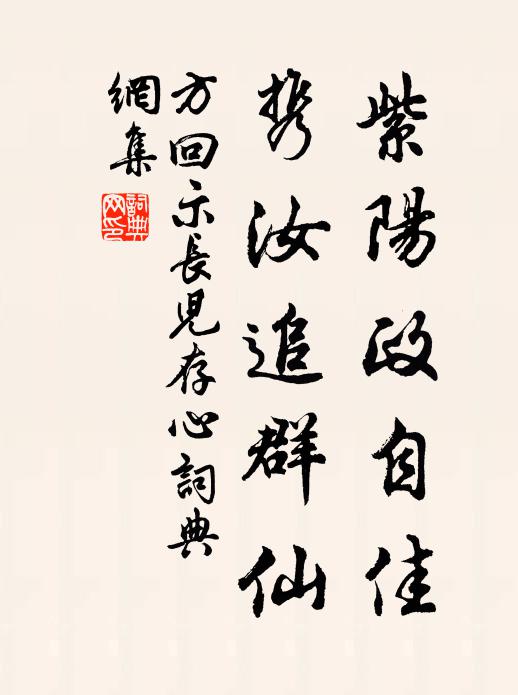 紫陽政自佳
攜汝追群仙
方回示長兒存心詞典
網集
詞典網印